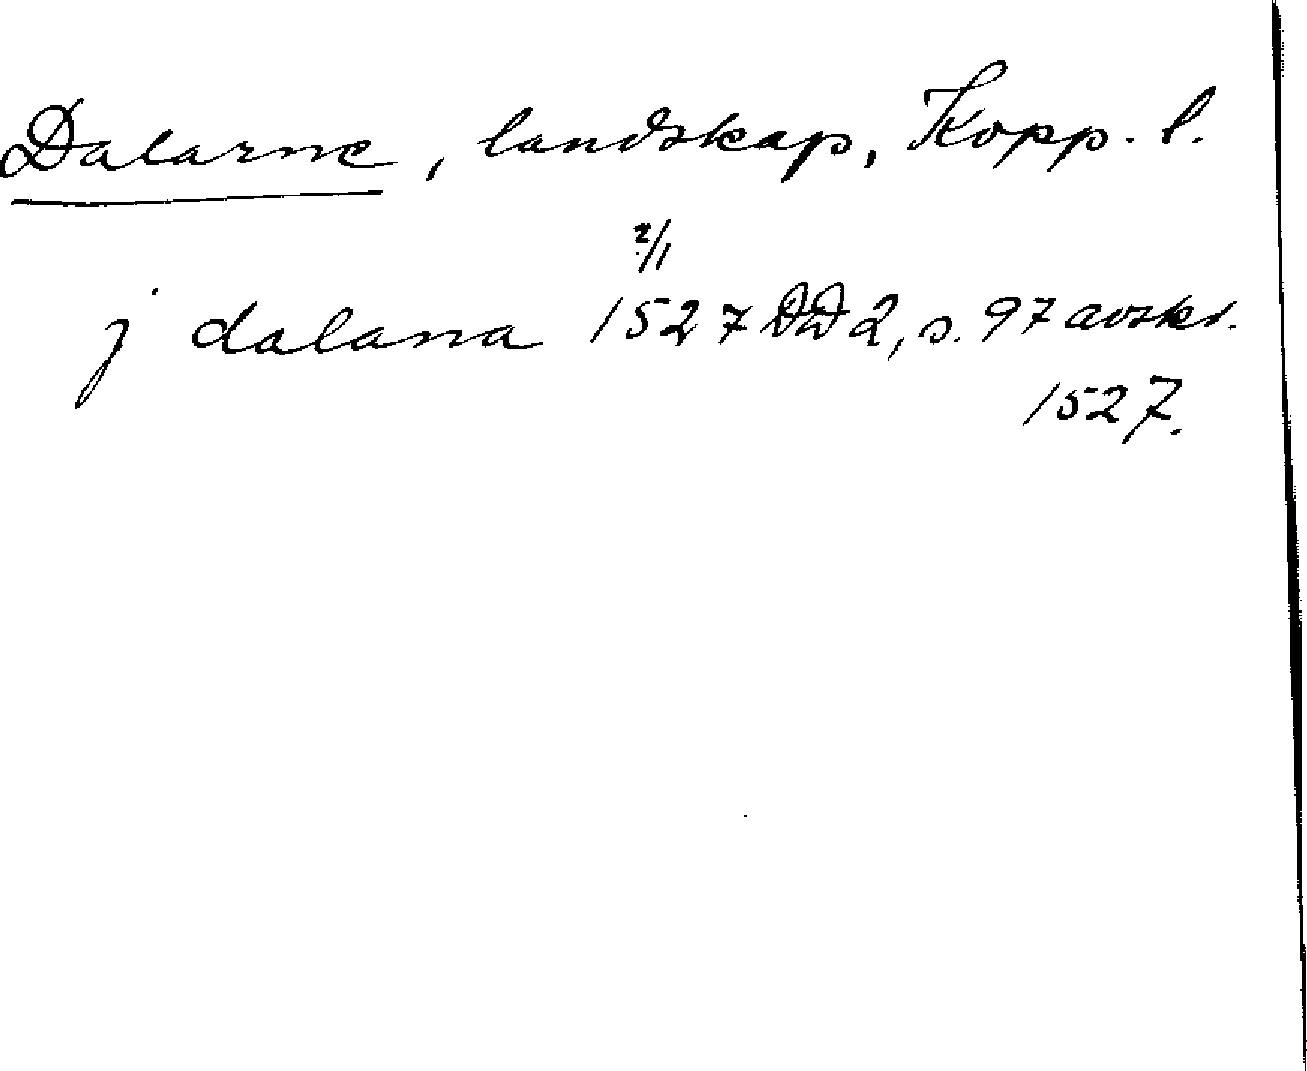 Dalarne, landskap, Kopp. l.
2/1
j dalana 1527 DD 2, s. 97 avskr.
1527.